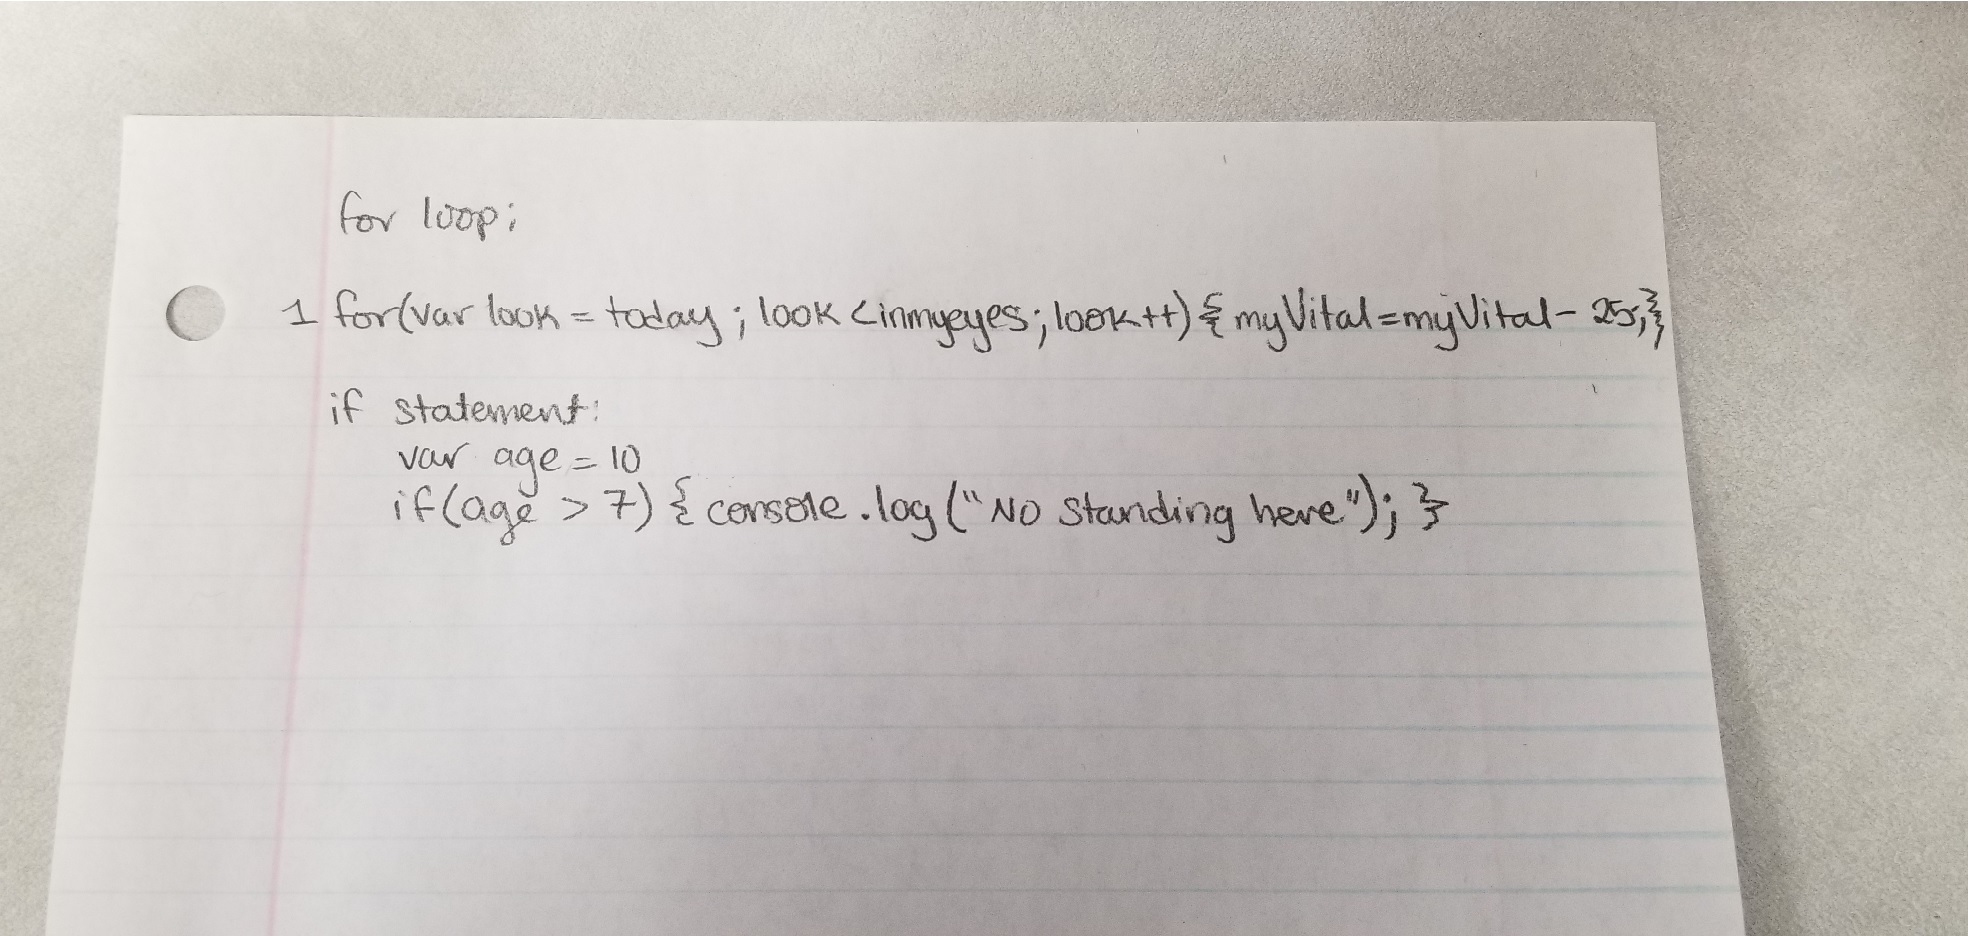 for loop;
1 for(var look = today; look < inmyeyes; look++) { myVital = myVital - 25;};
if statement:
var age = 10
if(age > 7) { console.log("No Standing here"); }